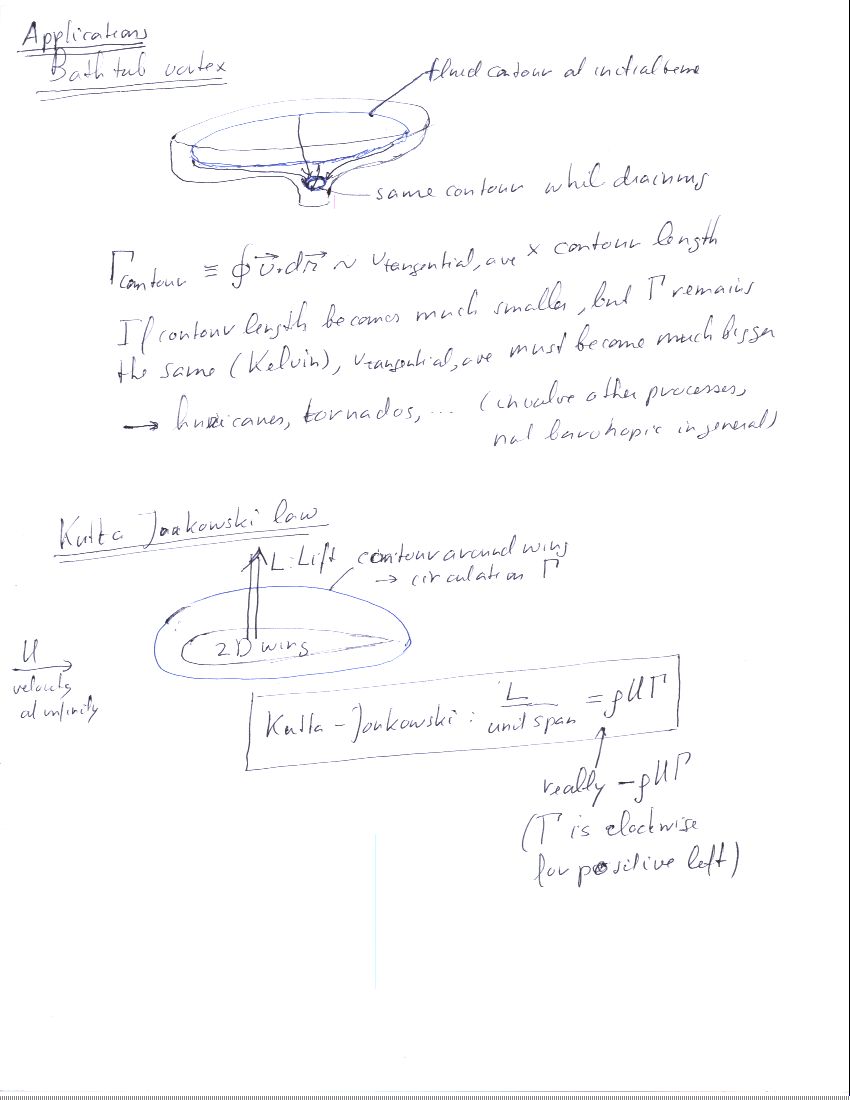 Applications
Bath tub vortex
fluid contour at initial time
same contour whil draining
Γcontour ≡ ∮ v⃗.dr⃗ ~ vtangential, ave x contour length
If contour length becomes much smaller, but Γ remains
the same (Kelvin), vtangential, ave must become much bigger
→ hurricanes, tornados, ... (involve other processes,
not barotropic in general)
Kutta Joukowski law
L: Lift
contour around wing
→ circulation Γ
2D wing
U
velocity
at infinity
Kutta-Joukowski: L / unit span = ρUΓ
really -ρUΓ
(Γ is clockwise
for positive left)